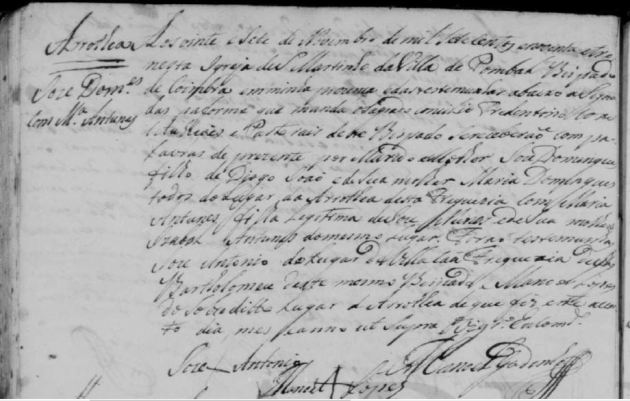 Arrotea
Joze Dom.es
com M.a Antunes
Aos vinte e Sete de Novembro de mil Sete centos e noventa e tres
nesta Igreja de S. Martinho da Villa de Pombal Bispado
de Coimbra em minha prezensa e das testemunhas abaixo a Signa
das na forma que manda o Sagrado concilio Tridentino
e Pastorais deste Bispado Se receberão com pa
lavras de prezente por Marido e mulher Joze Domingues
filho de Diogo João e de Sua molher Maria Domingues
todos do Lugar da Arrotea desta Freguezia Com Maria
Antunes filha Legitima de Joze e de Sua molher
Antunes do mesmo Lugar. Forão testemunhas
Joze Antonio do Lugar de Villa Cãa Freguezia de S.
Bartholomeu deste mesmo Bispado Manoel Lopes
do Sobredito Lugar d Arrotea de que fiz este acen
to dia, mes e anno ut Supra
Joze Antonio
Manoel + Lopes